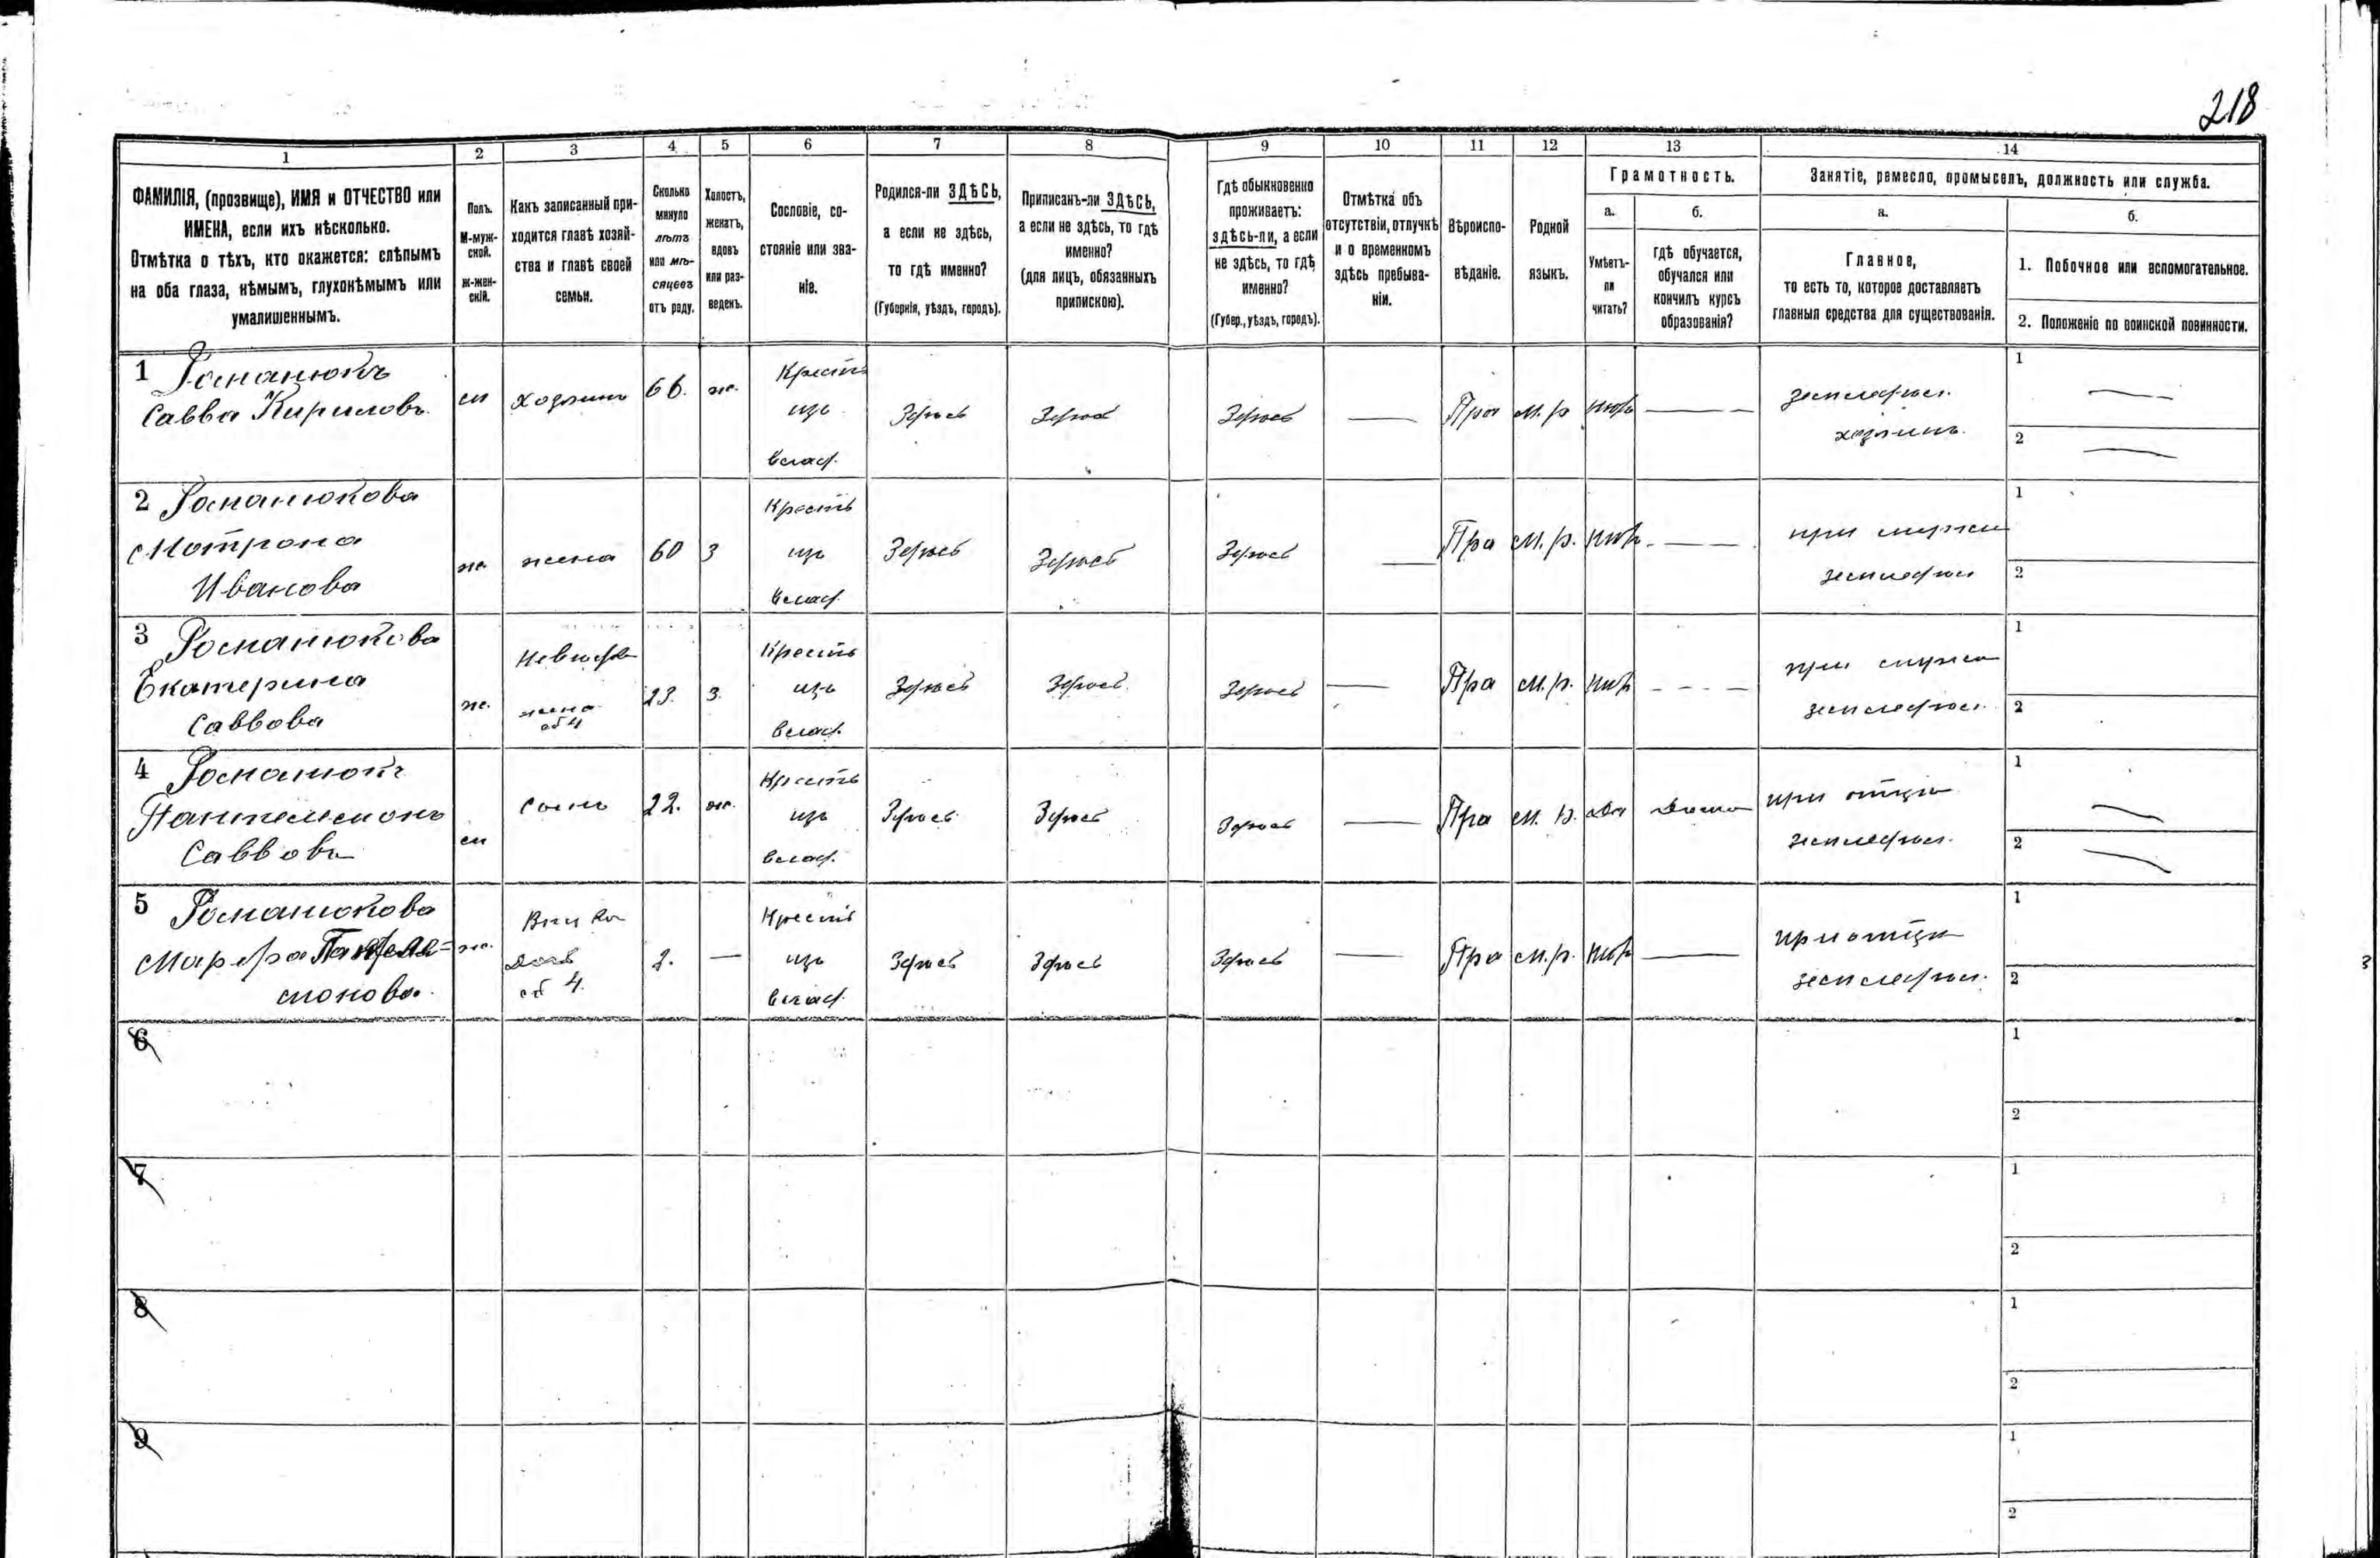 218
1 2 3 4 5 6 7 8 9 10 11 12 13 14
ФАМИЛІЯ, (прозвище), ИМЯ и ОТЧЕСТВО или
ИМЕНА, если ихъ нѣсколько.
Отмѣтка о тѣхъ, кто окажется: слѣпымъ
на оба глаза, нѣмымъ, глухонѣмымъ или
умалишеннымъ.
Полъ.
М-муж-
ской.
Ж-жен-
скій.
Какъ записанный при-
ходится главѣ хозяй-
ства и главѣ своей
семьи.
Сколько
минуло
лѣтъ
или мѣ-
сяцевъ
отъ роду.
Холостъ,
женатъ,
вдовъ
или раз-
веденъ.
Сословіе, со-
стояніе или зва-
ніе.
Родился-ли ЗДѢСЬ,
а если не здѣсь,
то гдѣ именно?
(Губернія, уѣздъ, городъ).
Приписанъ-ли ЗДѢСЬ,
а если не здѣсь, то гдѣ
именно?
(для лицъ, обязанныхъ
припискою).
Гдѣ обыкновенно
проживаетъ:
здѣсь-ли, а если
не здѣсь, то гдѣ
именно?
(Губер., уѣздъ, городъ).
Отмѣтка объ
отсутствіи, отлучкѣ
и о временномъ
здѣсь пребыва-
ніи.
Вѣроиспо-
вѣданіе.
Родной
языкъ.
Грамотность.
а.
Умѣетъ-
ли
читать?
б.
гдѣ обучается,
обучался или
кончилъ курсъ
образованія?
Занятіе, ремесло, промыселъ, должность или служба.
а.
Главное,
то есть то, которое доставляетъ
главныя средства для существованія.
б.
1. Побочное или вспомогательное.
2. Положеніе по воинской повинности.
1 Романюкъ
Савва Кириловъ
м хозяинъ 66. ж.
Крестъ
изъ
влад.
Здѣсь Здѣсь Здѣсь — Пра м.р нѣтъ —
земледѣл.
хозяинъ.
1 —
2 —
2 Романюкова
Матрона
Иванова
ж. жена 60 З
Кресть
изъ
влад.
Здѣсь Здѣсь Здѣсь — Пра м.р. нѣтъ —
при мужѣ
земледѣл
1
2
3 Романюкова
Екатерина
Саввова
ж.
Невѣстка
жена
об 4
23. З.
Кресть
изъ
влад.
Здѣсь Здѣсь. Здѣсь — Пра м.р. нѣтъ - - -
при мужѣ
земледѣл.
1
2
4 Романюкъ
Пантелемонъ
Саввовъ
м сынъ 22. ж.
Кресть
изъ
влад.
Здѣсь Здѣсь Здѣсь — Пра м.р. да дома
при отцѣ
земледѣл.
1 —
2 —
5 Романюкова
Марфа Пантеле=
монова.
ж.
Внучка
дочь
об 4.
2. —
Кресть
изъ
влад.
Здѣсь Здѣсь Здѣсь — Пра м.р. нѣтъ —
при отцѣ
земледѣл.
1
2
6
1
2
7
1
2
8
1
2
9
1
2
3